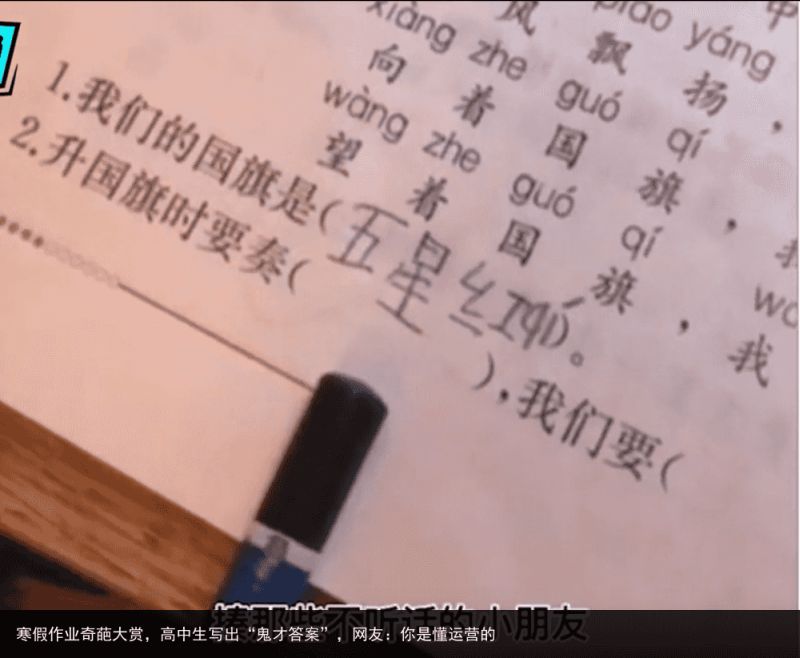 风 piāo yáng 中
xiàng zhe guó 飘 扬，
向 着 国 qí
wàng zhe guó 旗，
望 着 国 qí
旗，我
1.我们的国旗是(五星红qí)。
2.升国旗时要奏( ),我们要(
揍那些不听话的小朋友
寒假作业奇葩大赏，高中生写出“鬼才答案”，网友：你是懂运营的